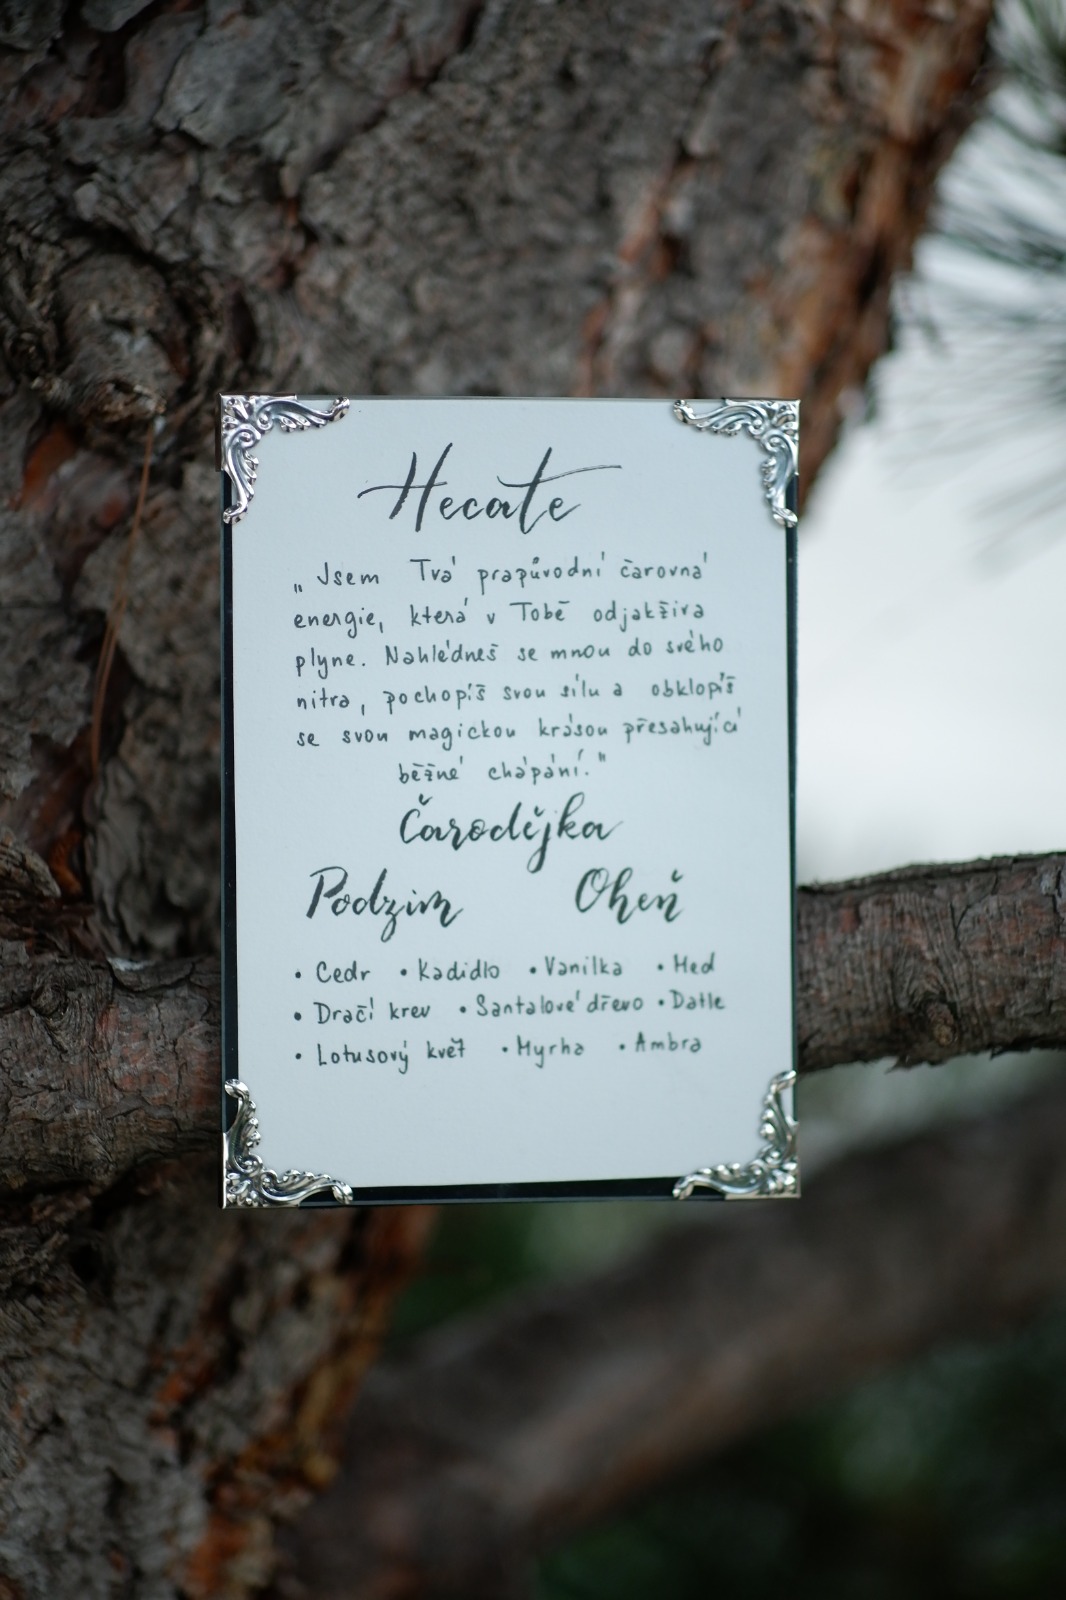 Hecate
„Jsem Tvá prapůvodní čarovná
energie, která v Tobě odjakživa
plyne. Nahlédneš se mnou do svého
nitra, pochopíš svou sílu a obklopíš
se svou magickou krásou přesahující
běžné chápání."
Čarodějka
Podzim Oheň
• Cedr • Kadidlo • Vanilka • Med
• Dračí krev • Santalové dřevo • Datle
• Lotusový květ • Myrha • Ambra